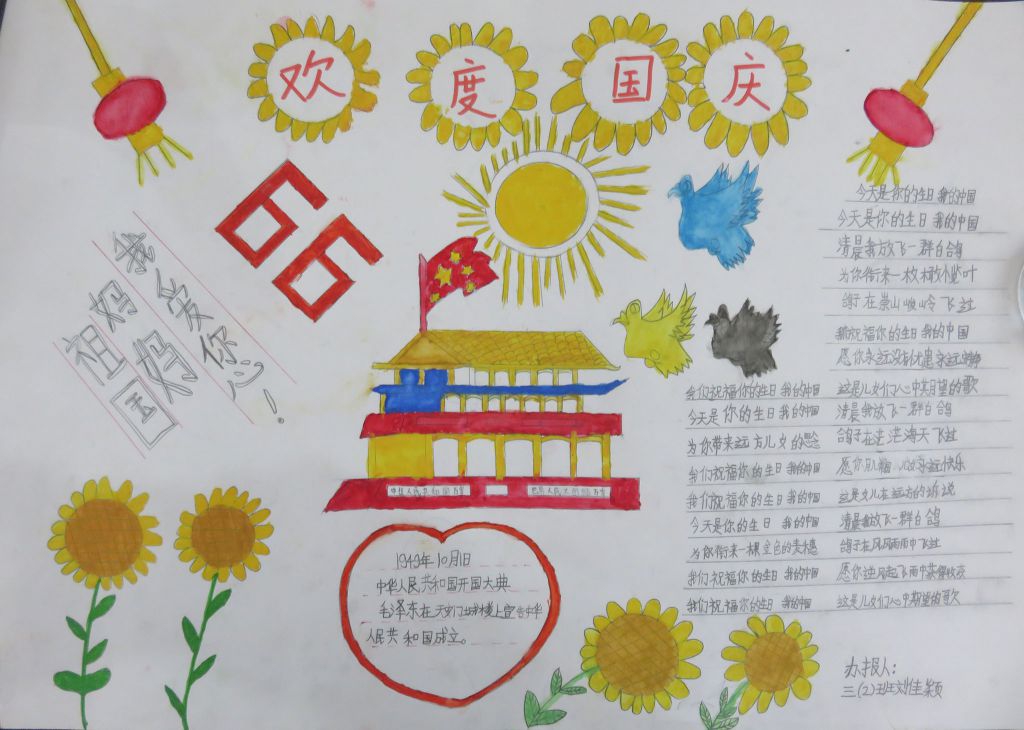 欢度国庆
66
我爱您！
祖国妈妈
今天是你的生日 我的中国
今天是你的生日 我的中国
清晨我放飞一群白鸽
为你衔来一枚橄榄叶
鸽子在崇山峻岭飞过
我们祝福你的生日 我的中国
愿你永远没有忧患 永远宁静
我们祝福你的生日 我的中国
这是儿女们心中期望的歌
今天是你的生日 我的中国
清晨我放飞一群白鸽
为你带来远方儿女的思念
鸽子在茫茫海天飞过
我们祝福你的生日 我的中国
愿你月儿常圆 儿女永远快乐
我们祝福你的生日 我的中国
这是女儿在远方的诉说
今天是你的生日 我的中国
清晨我放飞一群白鸽
为你衔来一棵金色的麦穗
鸽子在风风雨雨中飞过
我们祝福你的生日 我的中国
愿你逆风起飞雨中获得收获
我们祝福你的生日 我的中国
这是儿女们心中期望的歌
中华人民共和国万岁
世界人民大团结万岁
1949年10月1日
中华人民共和国开国大典
毛泽东在天安门城楼上宣告中华
人民共和国成立。
办报人：
三(2)班刘佳颖